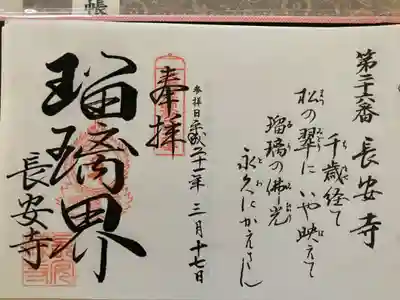 帳
第二十六番 長安寺
千歳経て
松の翠に いや映えて
瑠璃の佛光
永久にかえさん
奉拝
参拝日 平成二十一年 三月十七日
瑠璃界
長安寺